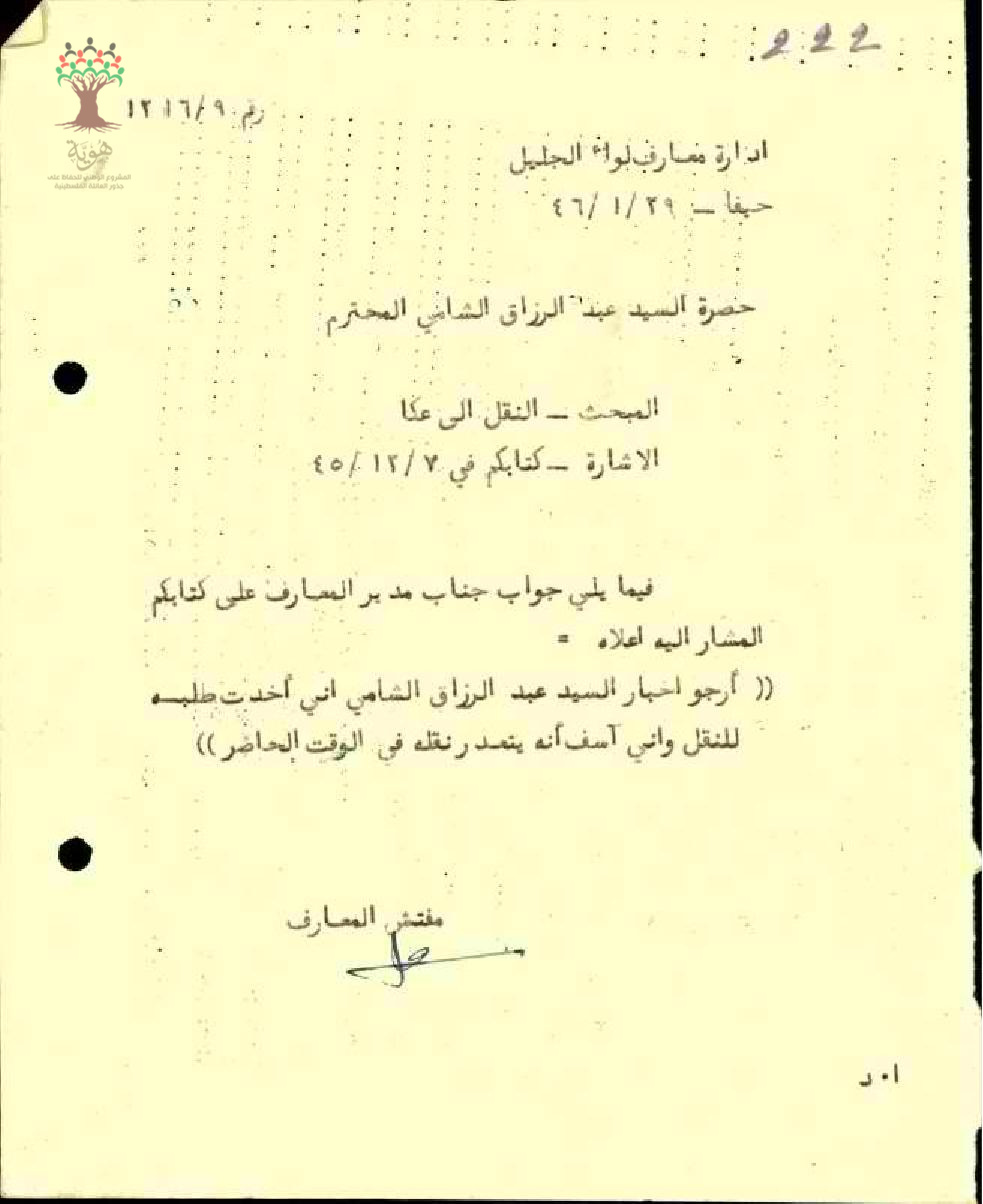 222
رقم ١٢١٦/٩
هوية
المشروع الوطني للحفاظ على
جذور العائلة الفلسطينية
ادارة معارف لواء الجليل
حيفا ــ ٢٩/ ١/ ٤٦
حضرة السيد عبد الرزاق الشامي المحترم
المبحث ــ النقل الى عكا
الاشارة ــ كتابكم في ٧/ ١٢/ ٤٥
فيما يلي جواب جناب مدير المعارف على كتابكم
المشار اليه اعلاه =
(( أرجو اخبار السيد عبد الرزاق الشامي اني أخذت طلبــه
للنقل واني آسف أنه يتعذر نقله في الوقت الحاضر ))
مفتش المعارف
ا٠ د